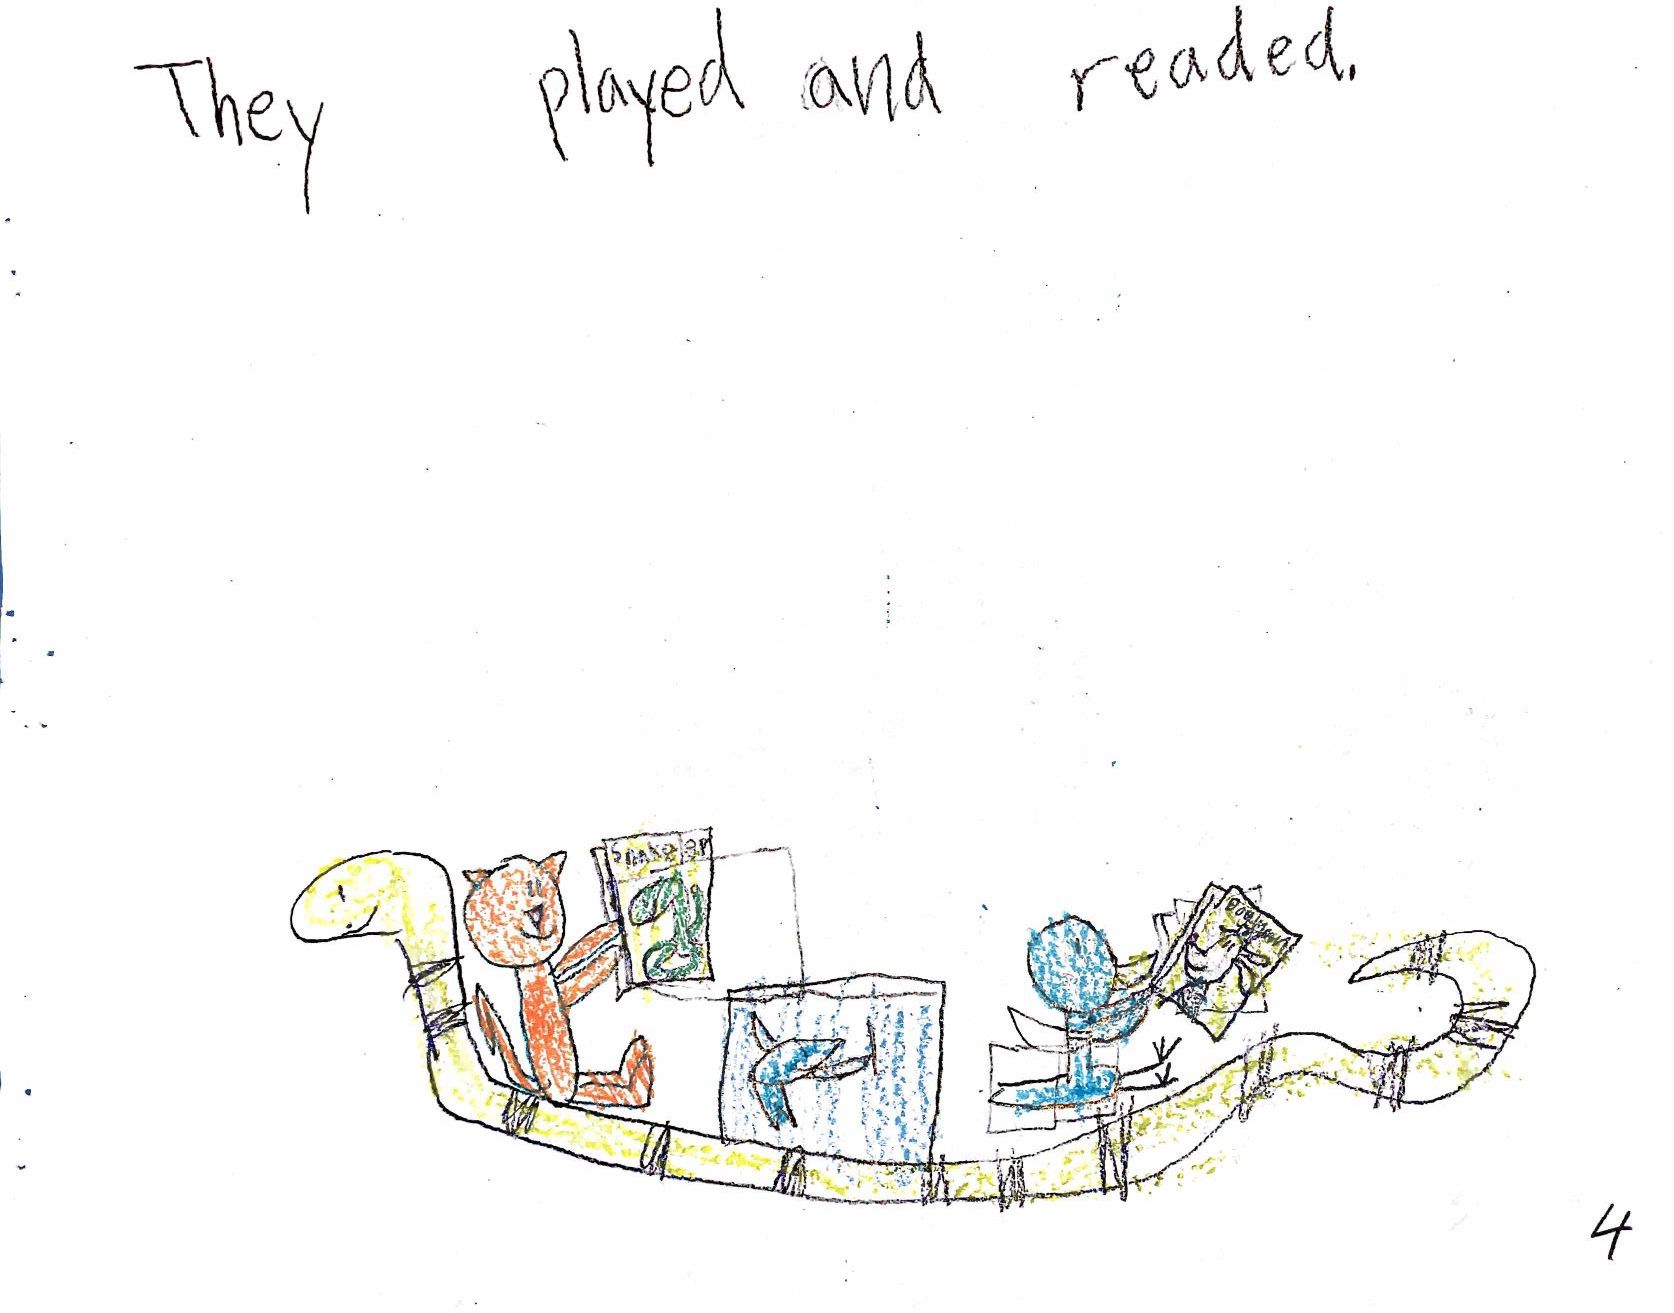 They played and readed.
4